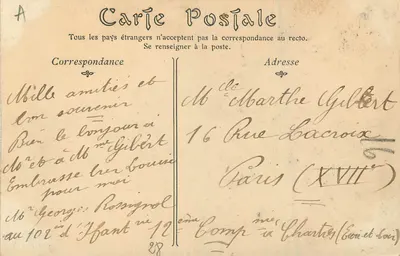 A
Carte Postale
Tous les pays étrangers n'acceptent pas la correspondance au recto.
Se renseigner à la poste.
Correspondance
Adresse
Mille amitiés et
bon souvenir
Bien le bonjour à
Mr et à Mme Gilbert
Embrasse
pour moi
Mr Georges Rossignol
au 102me d'Ifantrie 12ème Compme à Chartres (Eure et Loir)
28
Melle Marthe Gilbert
16 Rue Lacroix
Paris (XVIIe)
16